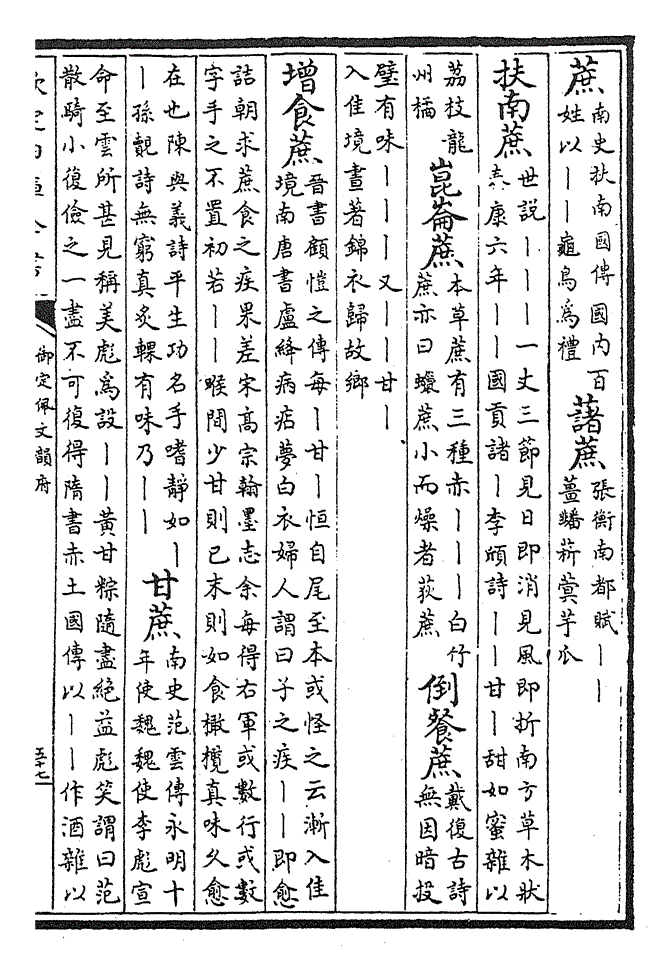 蔗
南史扶南國傳國内百
姓以丨丨龜鳥爲禮
藷蔗
張衡南都賦丨丨
薑𧃲菥蓂芋瓜
扶南蔗
世説丨丨丨一丈三節見日即消見風即折南方草木狀
泰康六年丨丨國貢諸丨李頎詩丨丨甘丨甜如蜜雜以
荔枝龍
州橘
崑崙蔗
本草蔗有三種赤丨丨丨白竹
蔗亦曰蠟蔗小而燥者荻蔗
倒餐蔗
戴復古詩
無因暗投
璧有味丨丨丨又丨丨甘丨
入佳境晝著錦衣歸故鄉
增食蔗
晉書顧愷之傳每丨甘丨恒自尾至本或怪之云漸入佳
境南唐書盧絳病痁夢白衣婦人謂曰子之疾丨丨即愈
詰朝求蔗食之疾果差宋髙宗翰墨志余每得右軍或數行或數
字手之不置初若丨丨喉間少甘則已末則如食橄欖真味久愈
在也陳與義詩平生功名手嗜靜如丨
丨孫覿詩無窮真炙輠有味乃丨丨
甘蔗
南史范雲傳永明十
年使魏魏使李彪宣
命至雲所甚見稱美彪爲設丨丨黄甘粽隨盡絶益彪笑謂曰范
散騎小復儉之一盡不可復得隋書赤土國傳以丨丨作酒雜以
欽定四庫全書
御定佩文韻府